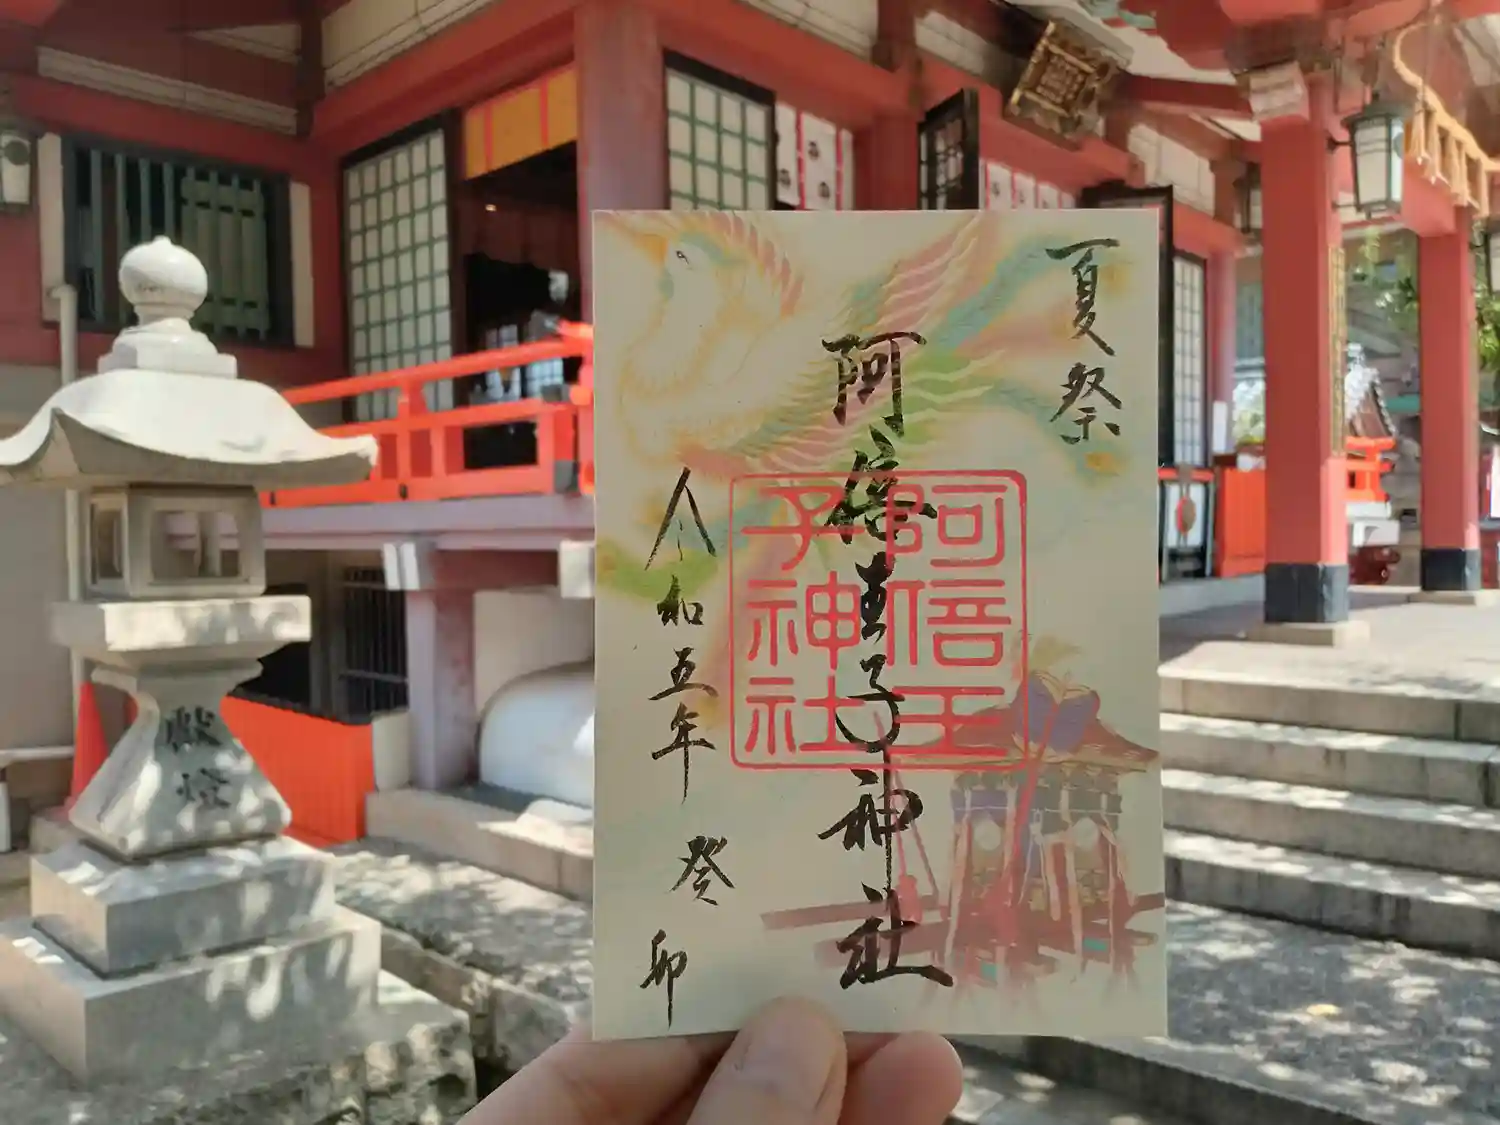 夏祭
阿倍王子神社
令和五年
癸卯
阿倍王
子神社
献燈